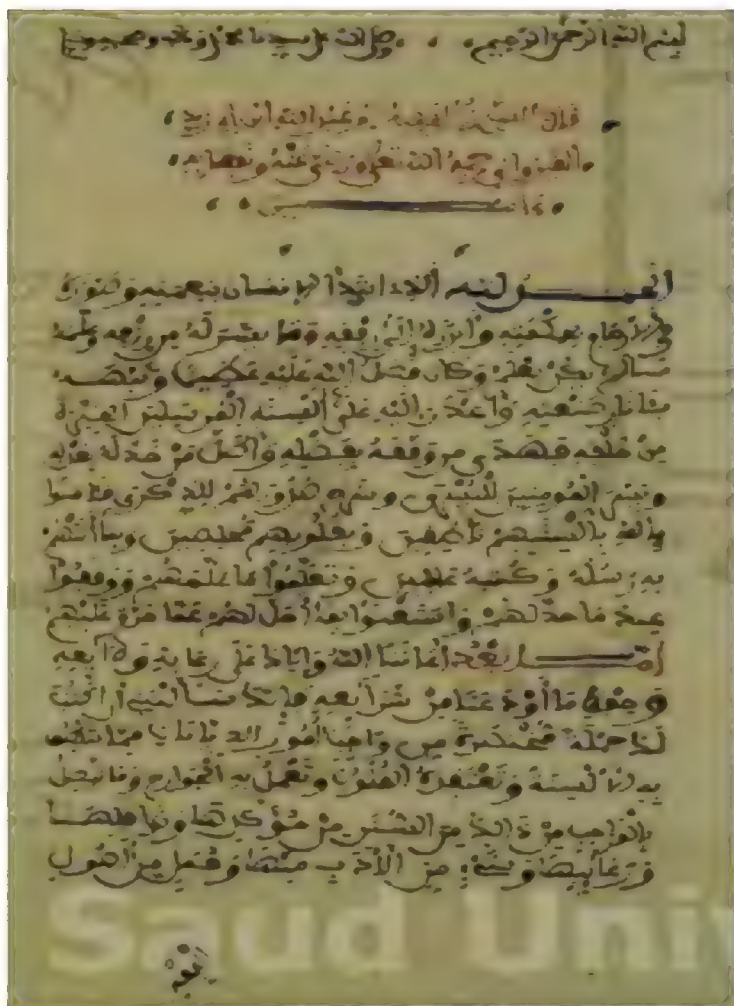 بسم الله الرحمن الرحيم وصلى الله على سيدنا محمد وءاله وصحبه
قال الفقيه عبد الله ابن ابي زيد
القيرواني رحمه الله تعلى ورضي عنه
ءامين
الحمد لله الذي ابتدأ الإنسان بنعمته وصوره
في الأرحام بحكمته وأبرزه إلى رفقه وما يسر له من رزقه وعلمه
ما لم يكن يعلم وكان فضل الله عليه عظيما ونبهه
بآثار صنعته وأعذر إليه على ألسنة المرسلين الخيرة
من خلقه فهدى من وفقه بفضله وأضل من خذله بعدله
ويسر المومنين لليسرى وشرح صدورهم للذكرى فآمنوا
بالله بألسنتهم ناطقين وبقلوبهم مخلصين وبما أتتهم
به رسله وكتبه عاملين وتعلموا ما علمهم ووقفوا
عند ما حد لهم واستغنوا بما أحل لهم عما حرم عليهم
أما بعد أعاننا الله وإياك على رعاية ودائعه
وحفظ ما أودعنا من شرائعه فإنك سألتني أن أكتب
لك جملة مختصرة من واجب أمور الديانات مما تنطق
به الألسنة وتعتقده القلوب وتعمل به الجوارح وما يتصل
بالواجب من ذالك من السنن من مؤكدها ونوافلها
ورغائبها وشيء من الأدب منها وجمل من أصول
الفقه
Saud Univ